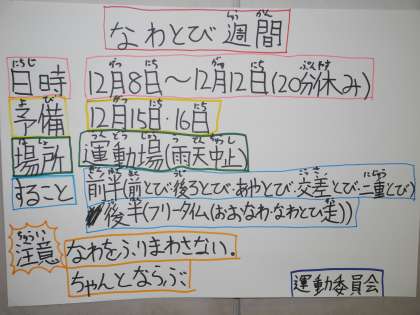 なわとび週間
日時 12月8日～12月12日(20分休み)
予備 12月15日・16日
場所 運動場(雨天中止)
すること 前半(前とび・後ろとび・あやとび・交差とび・二重とび)
後半(フリータイム(おおなわ・なわとび走))
注意 なわをふりまわさない。
ちゃんとならぶ
運動委員会